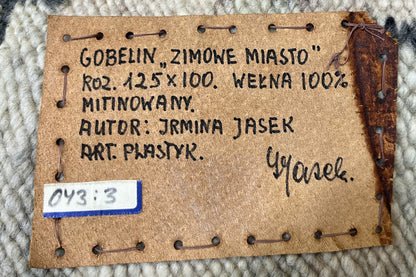 GOBELIN „ZIMOWE MIASTO"
ROZ. 125×100. WEŁNA 100%
MITINOWANY.
AUTOR: IRMINA JASEK
ART. PLASTYK.
IJasek.
043:3